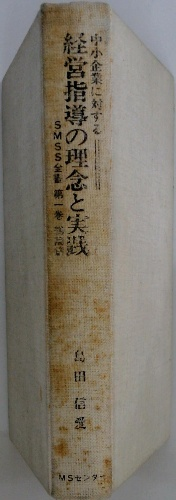 中小企業に対する
経営指導の理念と実践
SMSS全書 第一巻
島田信愛
MSセンター